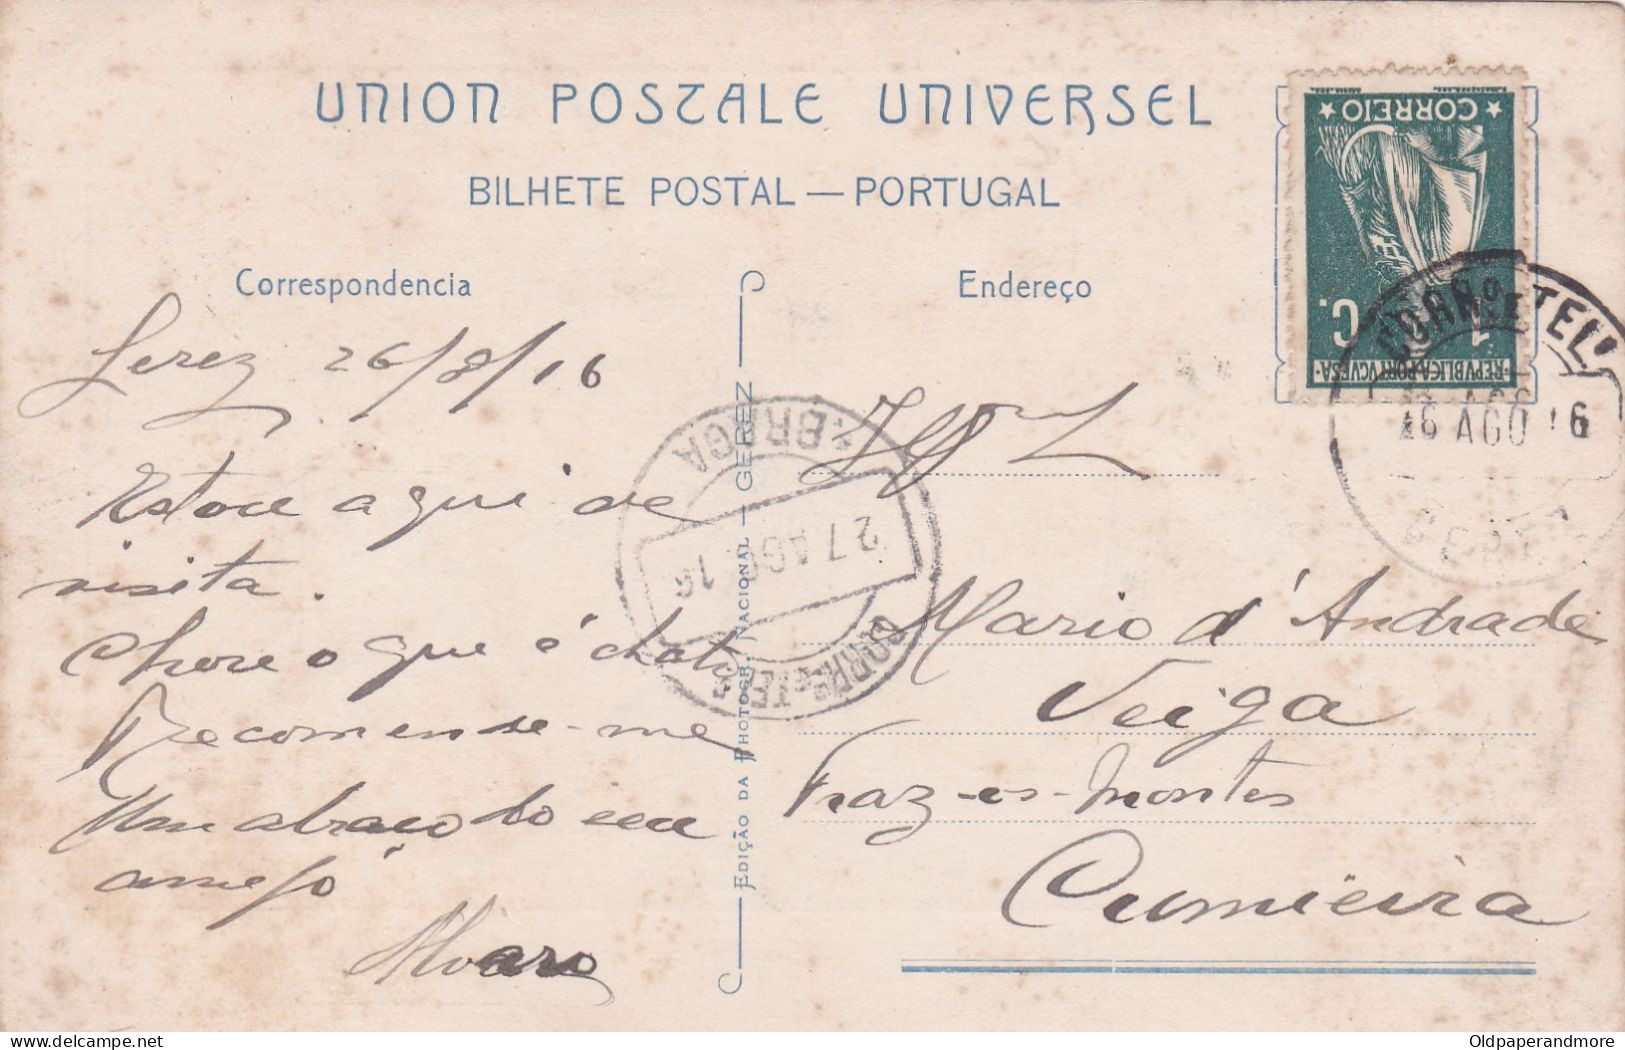 UNION POSTALE UNIVERSEL
BILHETE POSTAL — PORTUGAL
Correspondencia
Endereço
CORREIO
1 C.
REPVBLICA PORTVGVESA
CORRº E TEL
26 AGO 16
GEREZ
Gerez 26/8/16
Estou aqui de
visita.
o que é chato
Recomende-me
Um abraço do seu
amigo
Alvaro
BRAGA
27 AGO 16
CORRº E TEL
EDIÇÃO DA PHOTOGR. NACIONAL — GEREZ
Mario d'Andrade
Veiga
Traz-os-Montes
Cumieira
Oldpaperandmore
delcampe.net